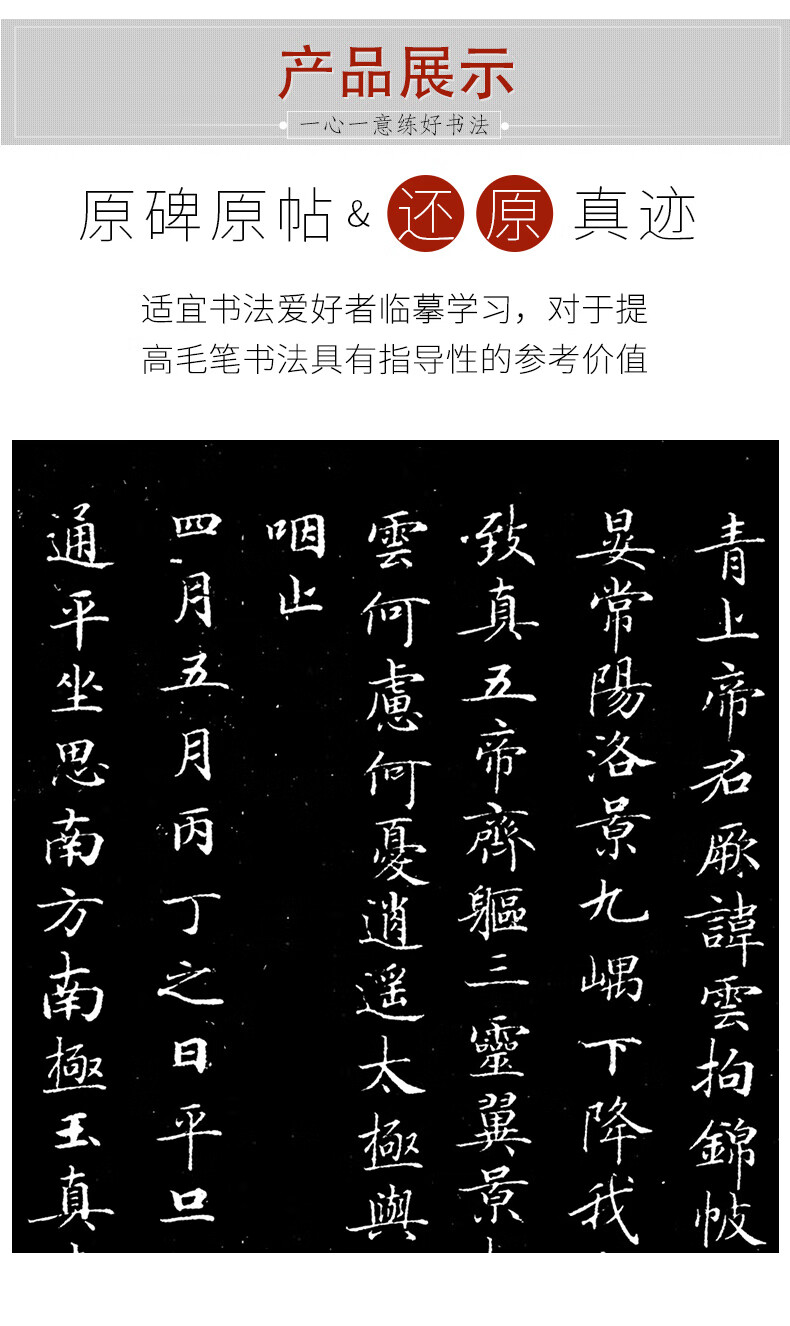 产品展示
一心一意练好书法
原碑原帖&还原真迹
适宜书法爱好者临摹学习，对于提
高毛笔书法具有指导性的参考价值
青上帝君厥諱雲拘錦帔
晏常陽洛景九嵎下降我
致真五帝齊軀三靈翼景
雲何慮何憂逍遥太極與
咽止
四月五月丙丁之日平旦
通平坐思南方南極玉真